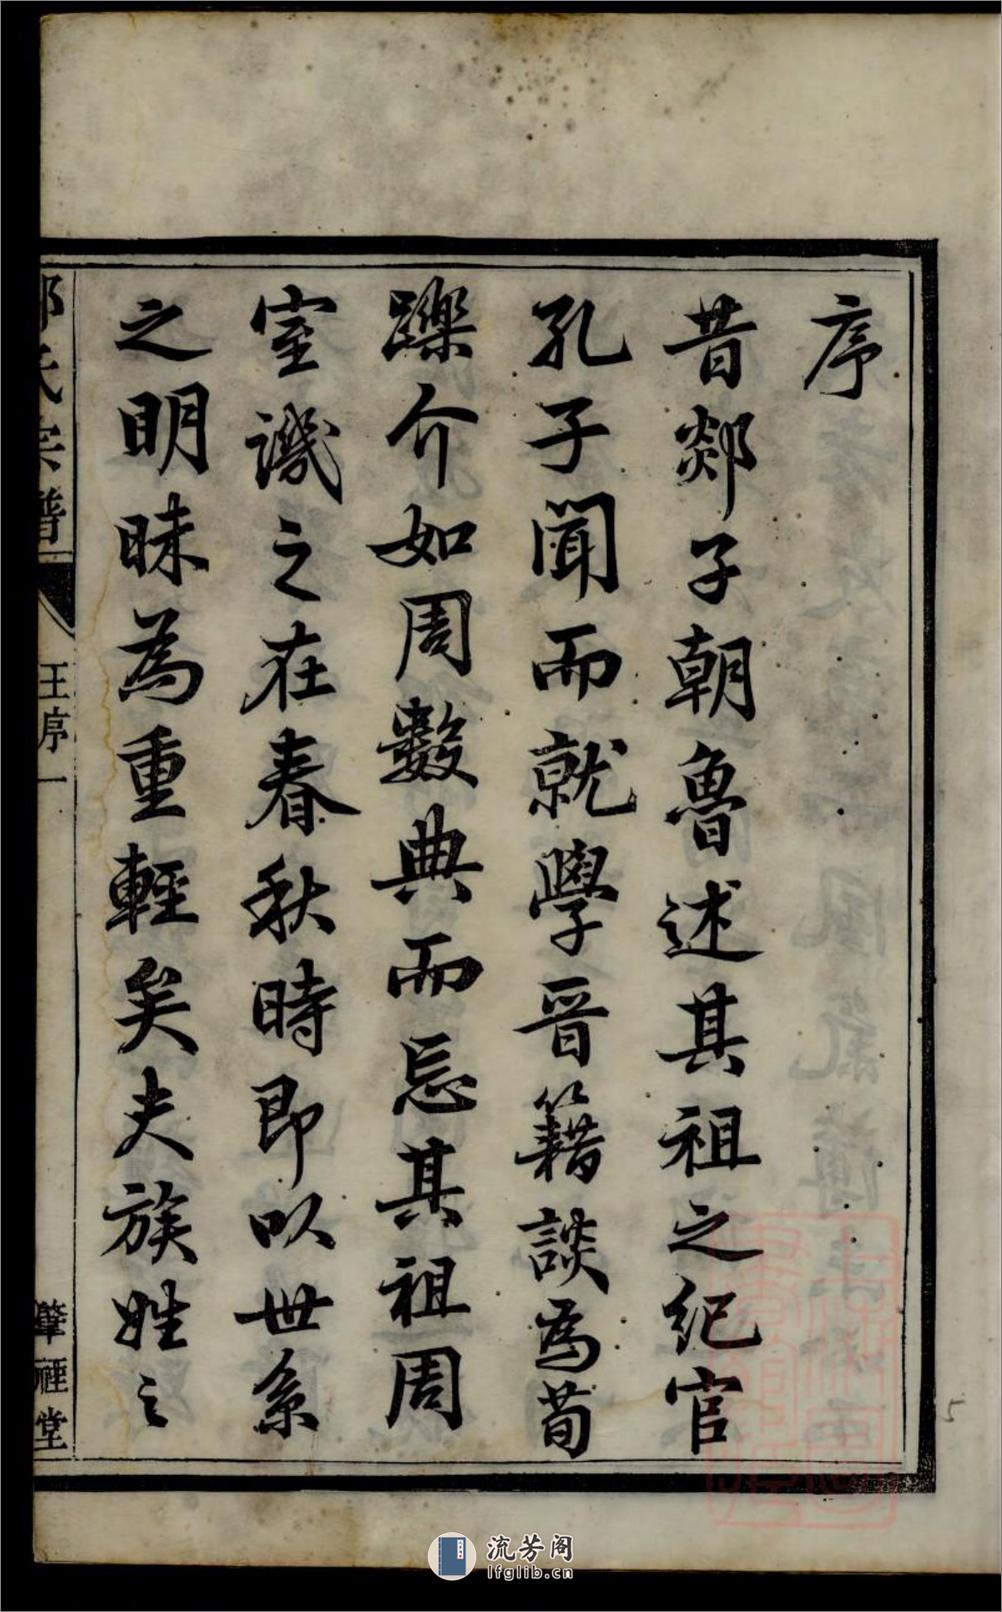 序
昔郯子朝魯述其祖之紀官
孔子聞而就學晉籍談為荀
躒介如周數典而忘其祖周
室譏之在春秋時即以世系
之明昧為重輕矣夫族姓之
氏宗譜
王序一
肇禋堂
流芳阁
lfglib.cn
5